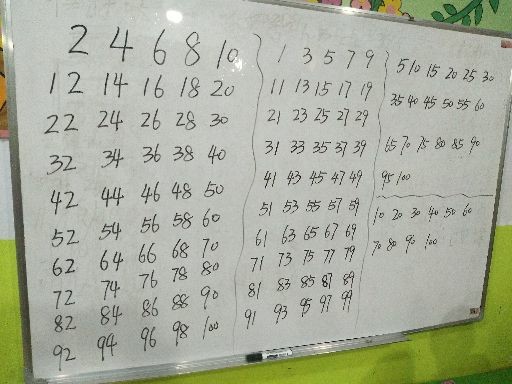 2 4 6 8 10
12 14 16 18 20
22 24 26 28 30
32 34 36 38 40
42 44 46 48 50
52 54 56 58 60
62 64 66 68 70
72 74 76 78 80
82 84 86 88 90
92 94 96 98 100
1 3 5 7 9
11 13 15 17 19
21 23 25 27 29
31 33 35 37 39
41 43 45 47 49
51 53 55 57 59
61 63 65 67 69
71 73 75 77 79
81 83 85 87 89
91 93 95 97 99
5 10 15 20 25 30
35 40 45 50 55 60
65 70 75 80 85 90
95 100
10 20 30 40 50 60
70 80 90 100